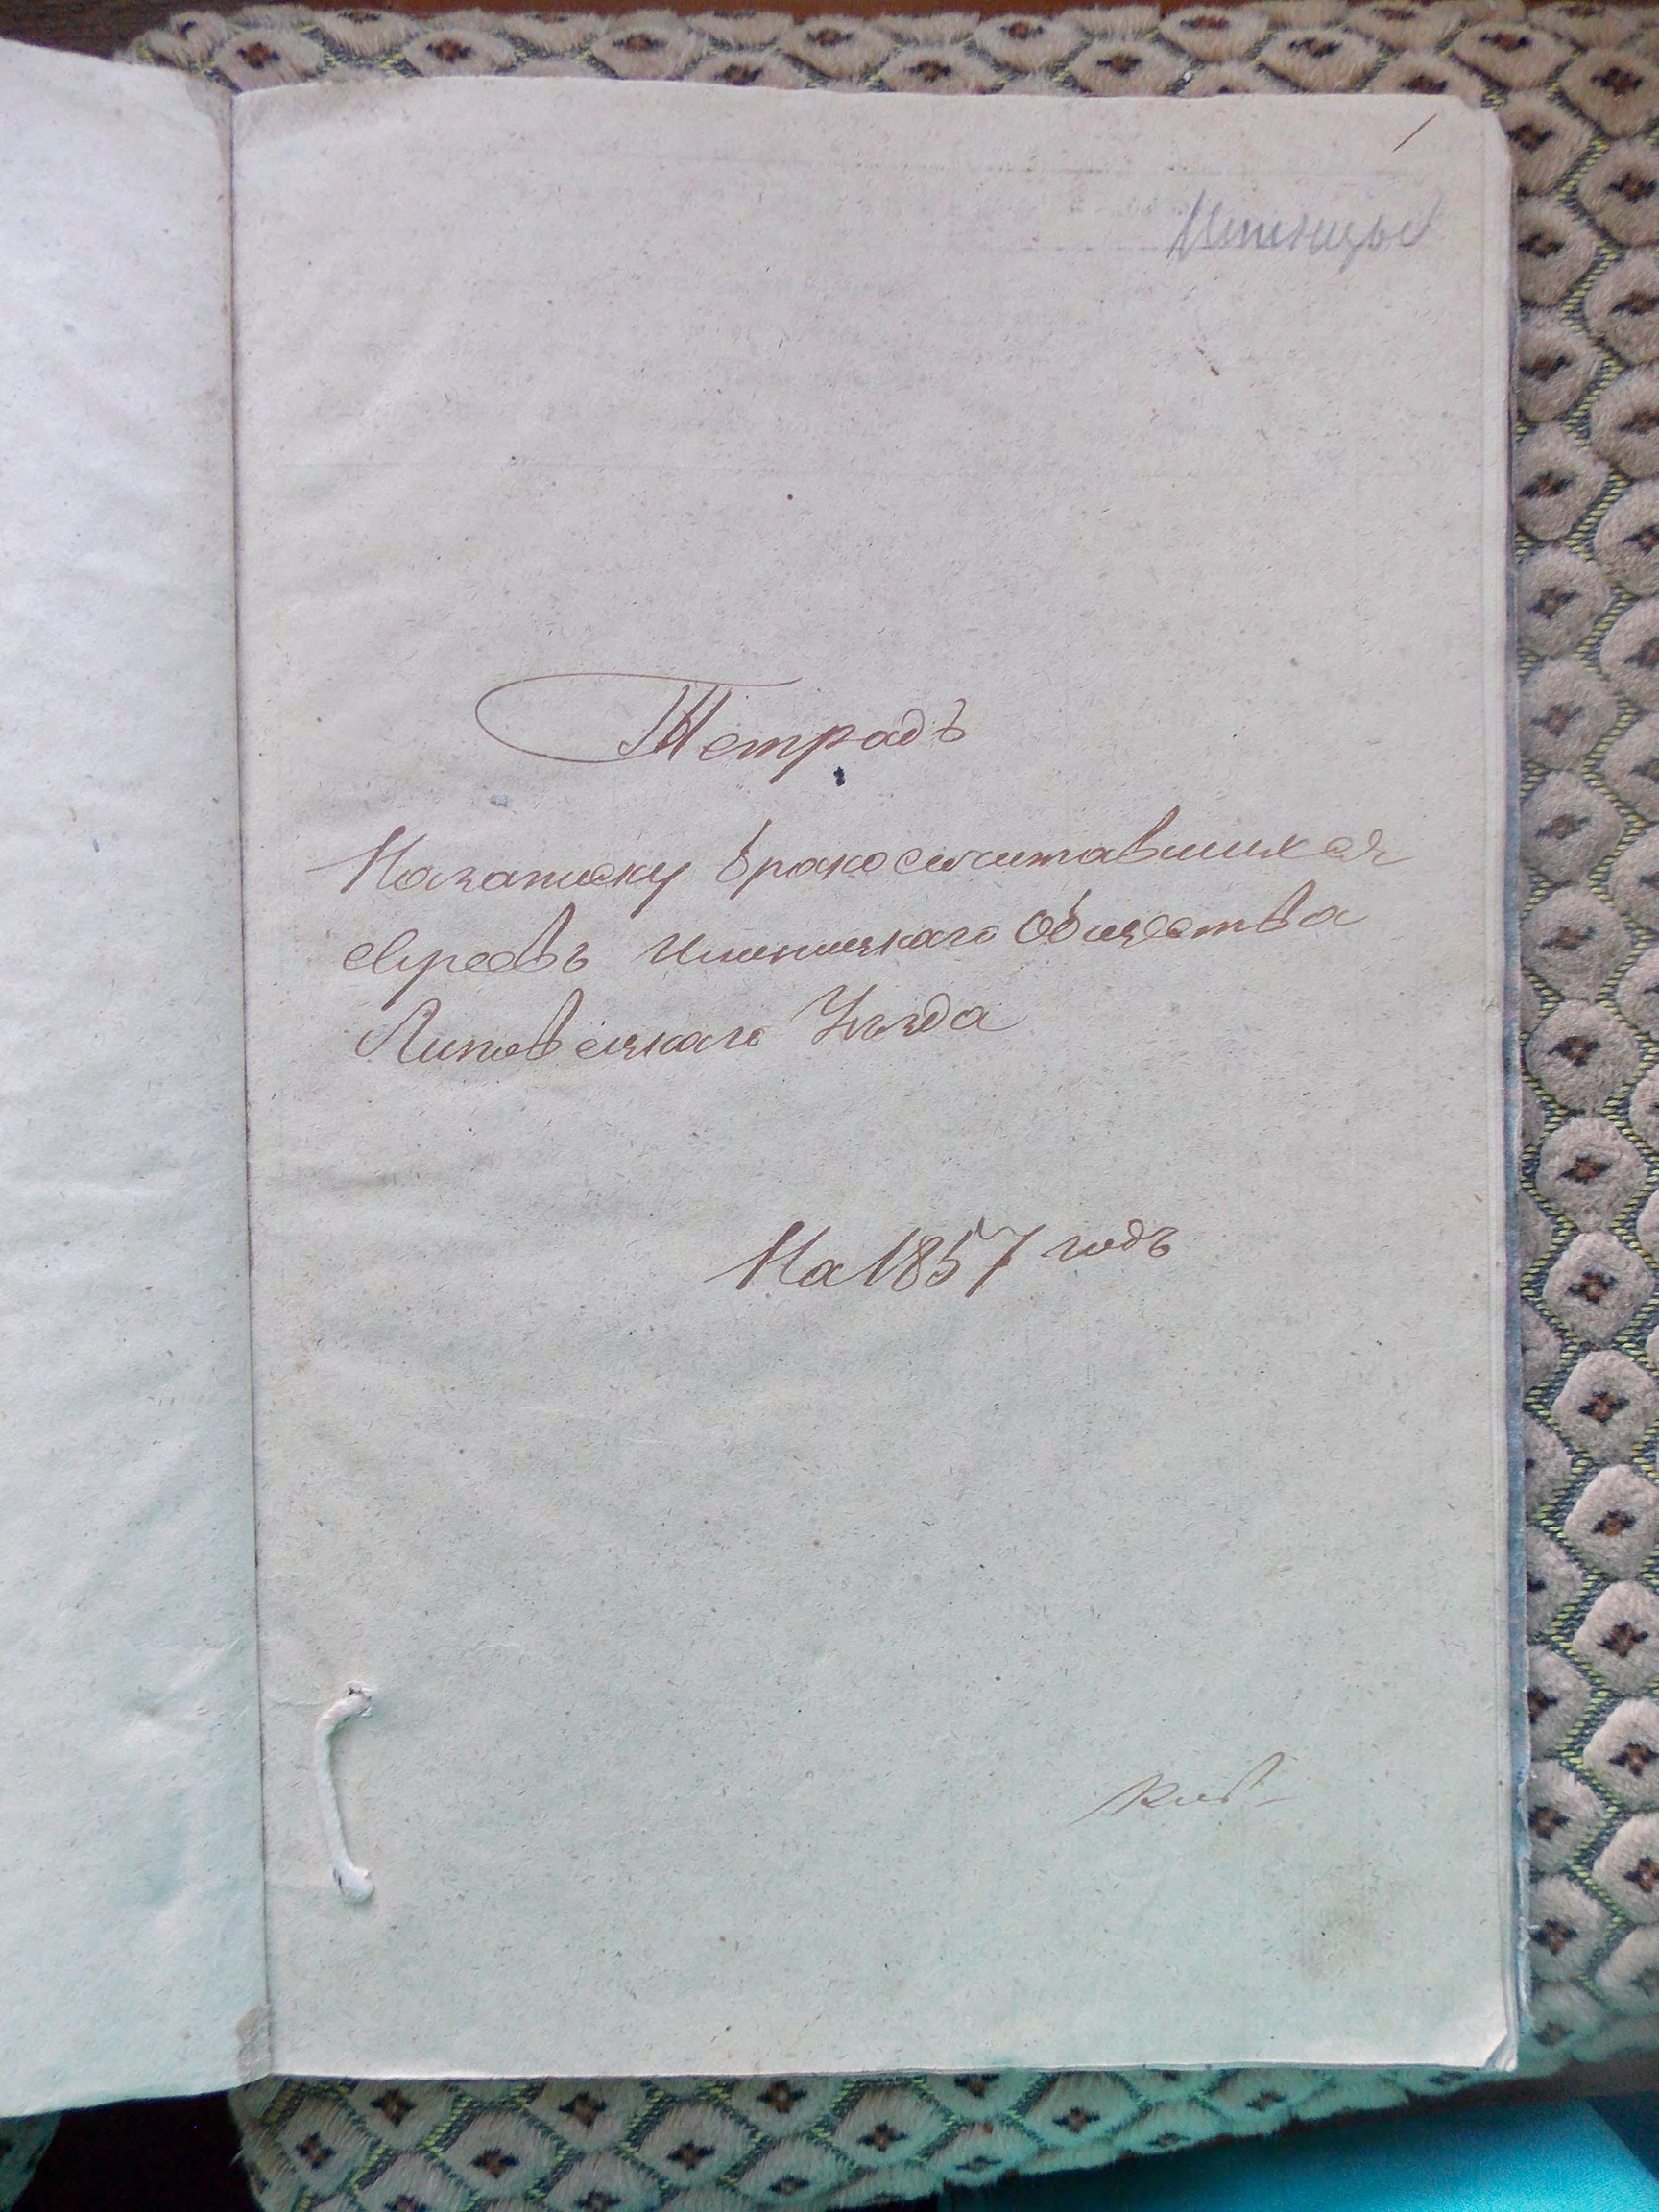 1
Ильинцы
Тетрадь
На записку бракосочитавшихся
Евреовъ Илинецкаго Общества
Липовецкаго Уезда
На 1857 годъ